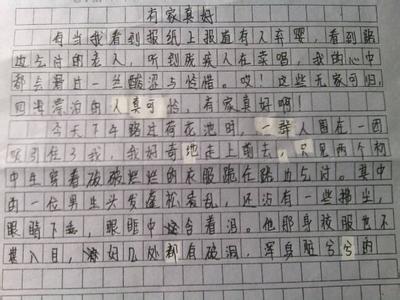 有家真好
有当我看到报纸上报道有人弃婴，看到路
边乞讨的老人，听到残疾人在卖唱，我的心中
都会看过一丝酸涩与怜惜。哎！这些无家可归，
四海漂泊的人真可怜，有家真好啊！
今天下午路过荷花池时，一群人围在一团
吸引住了我，我好奇地走上前去，只见两个初
中生穿着破破烂烂的衣服跪在路边乞讨。其中
的一位男生头发蓬松若乱，还沾有一些橘尘，
眼睛下垂，眼眶中含着泪。他那身校服也不
堪入目，好几处都有破洞，浑身脏兮兮的